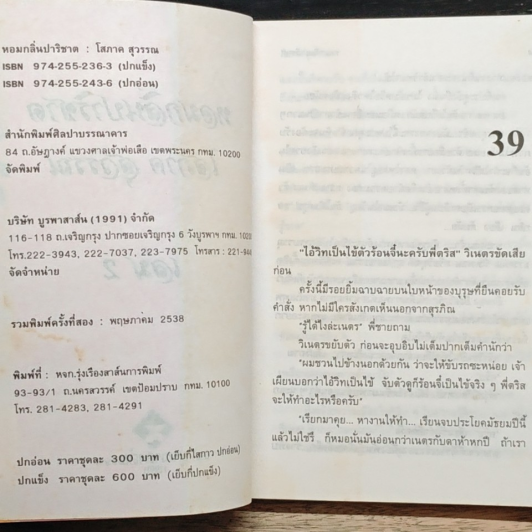 หอมกลิ่นปาริชาต : โสภาค สุวรรณ
ISBN 974-255-236-3 (ปกแข็ง)
ISBN 974-255-243-6 (ปกอ่อน)
สำนักพิมพ์ศิลปาบรรณาคาร
84 ถ.อัษฎางค์ แขวงศาลเจ้าพ่อเสือ เขตพระนคร กทม. 10200
จัดพิมพ์
บริษัท บูรพาสาส์น (1991) จำกัด
116-118 ถ.เจริญกรุง ปากซอยเจริญกรุง 6 วังบูรพาฯ กทม.
โทร.222-3943, 222-7037, 223-7975 โทรสาร :
จัดจำหน่าย
รวมพิมพ์ครั้งที่สอง : พฤษภาคม 2538
พิมพ์ที่ : หจก.รุ่งเรืองสาส์นการพิมพ์
93-93/1 ถ.นครสวรรค์ เขตป้อมปราบ กทม. 10100
โทร. 281-4283, 281-4291
ปกอ่อน ราคาชุดละ 300 บาท (เย็บกี่ไสกาว ปกอ่อน)
ปกแข็ง ราคาชุดละ 600 บาท (เย็บกี่ปกแข็ง)
39
"ไอ้วิทเป็นไข้ตัวร้อนจี๋นะครับพี่ตริส" วิเนตรขัดเสีย
ก่อน
ครั้งนี้มีรอยยิ้มฉาบฉายบนใบหน้าของบุรุษที่ยืนคอยรับ
คำสั่ง หากไม่มีใครสังเกตเห็นนอกจากสุรภิณ
"รู้ได้ไงล่ะเนตร" พี่ชายถาม
วิเนตรขยับตัว ก่อนจะอุบอิบไม่เต็มปากเต็มคำนักว่า
"ผมชวนไปข้างนอกด้วยกัน ว่าจะให้ขับรถซะหน่อย เจ้า
เผียนบอกว่าไอ้วิทเป็นไข้ จับตัวดูก็ร้อนจี๋เป็นไข้จริง ๆ พี่ตริส
จะให้ทำอะไรหรือครับ"
"เรียกมาคุย... หางานให้ทำ... เรียนจบประโยคมัธยมปีนี้
แล้วไม่ใช่รึ ก็หมอนั่นมันอ่อนกว่าเนตรกับดาห้าหกปี ถ้าเรา